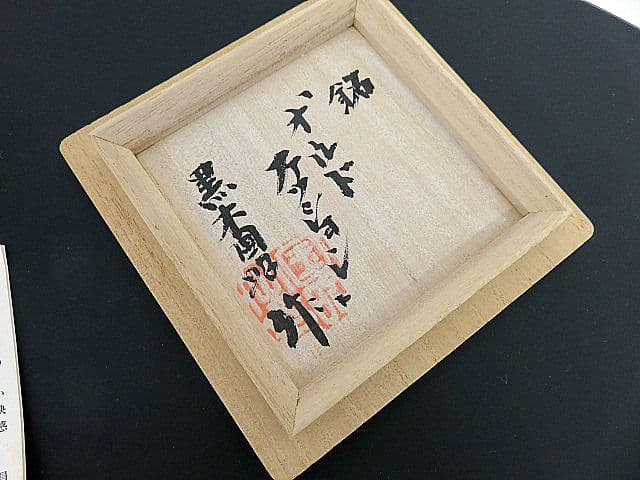 銘
オールド
ファッション
黒木国昭 作